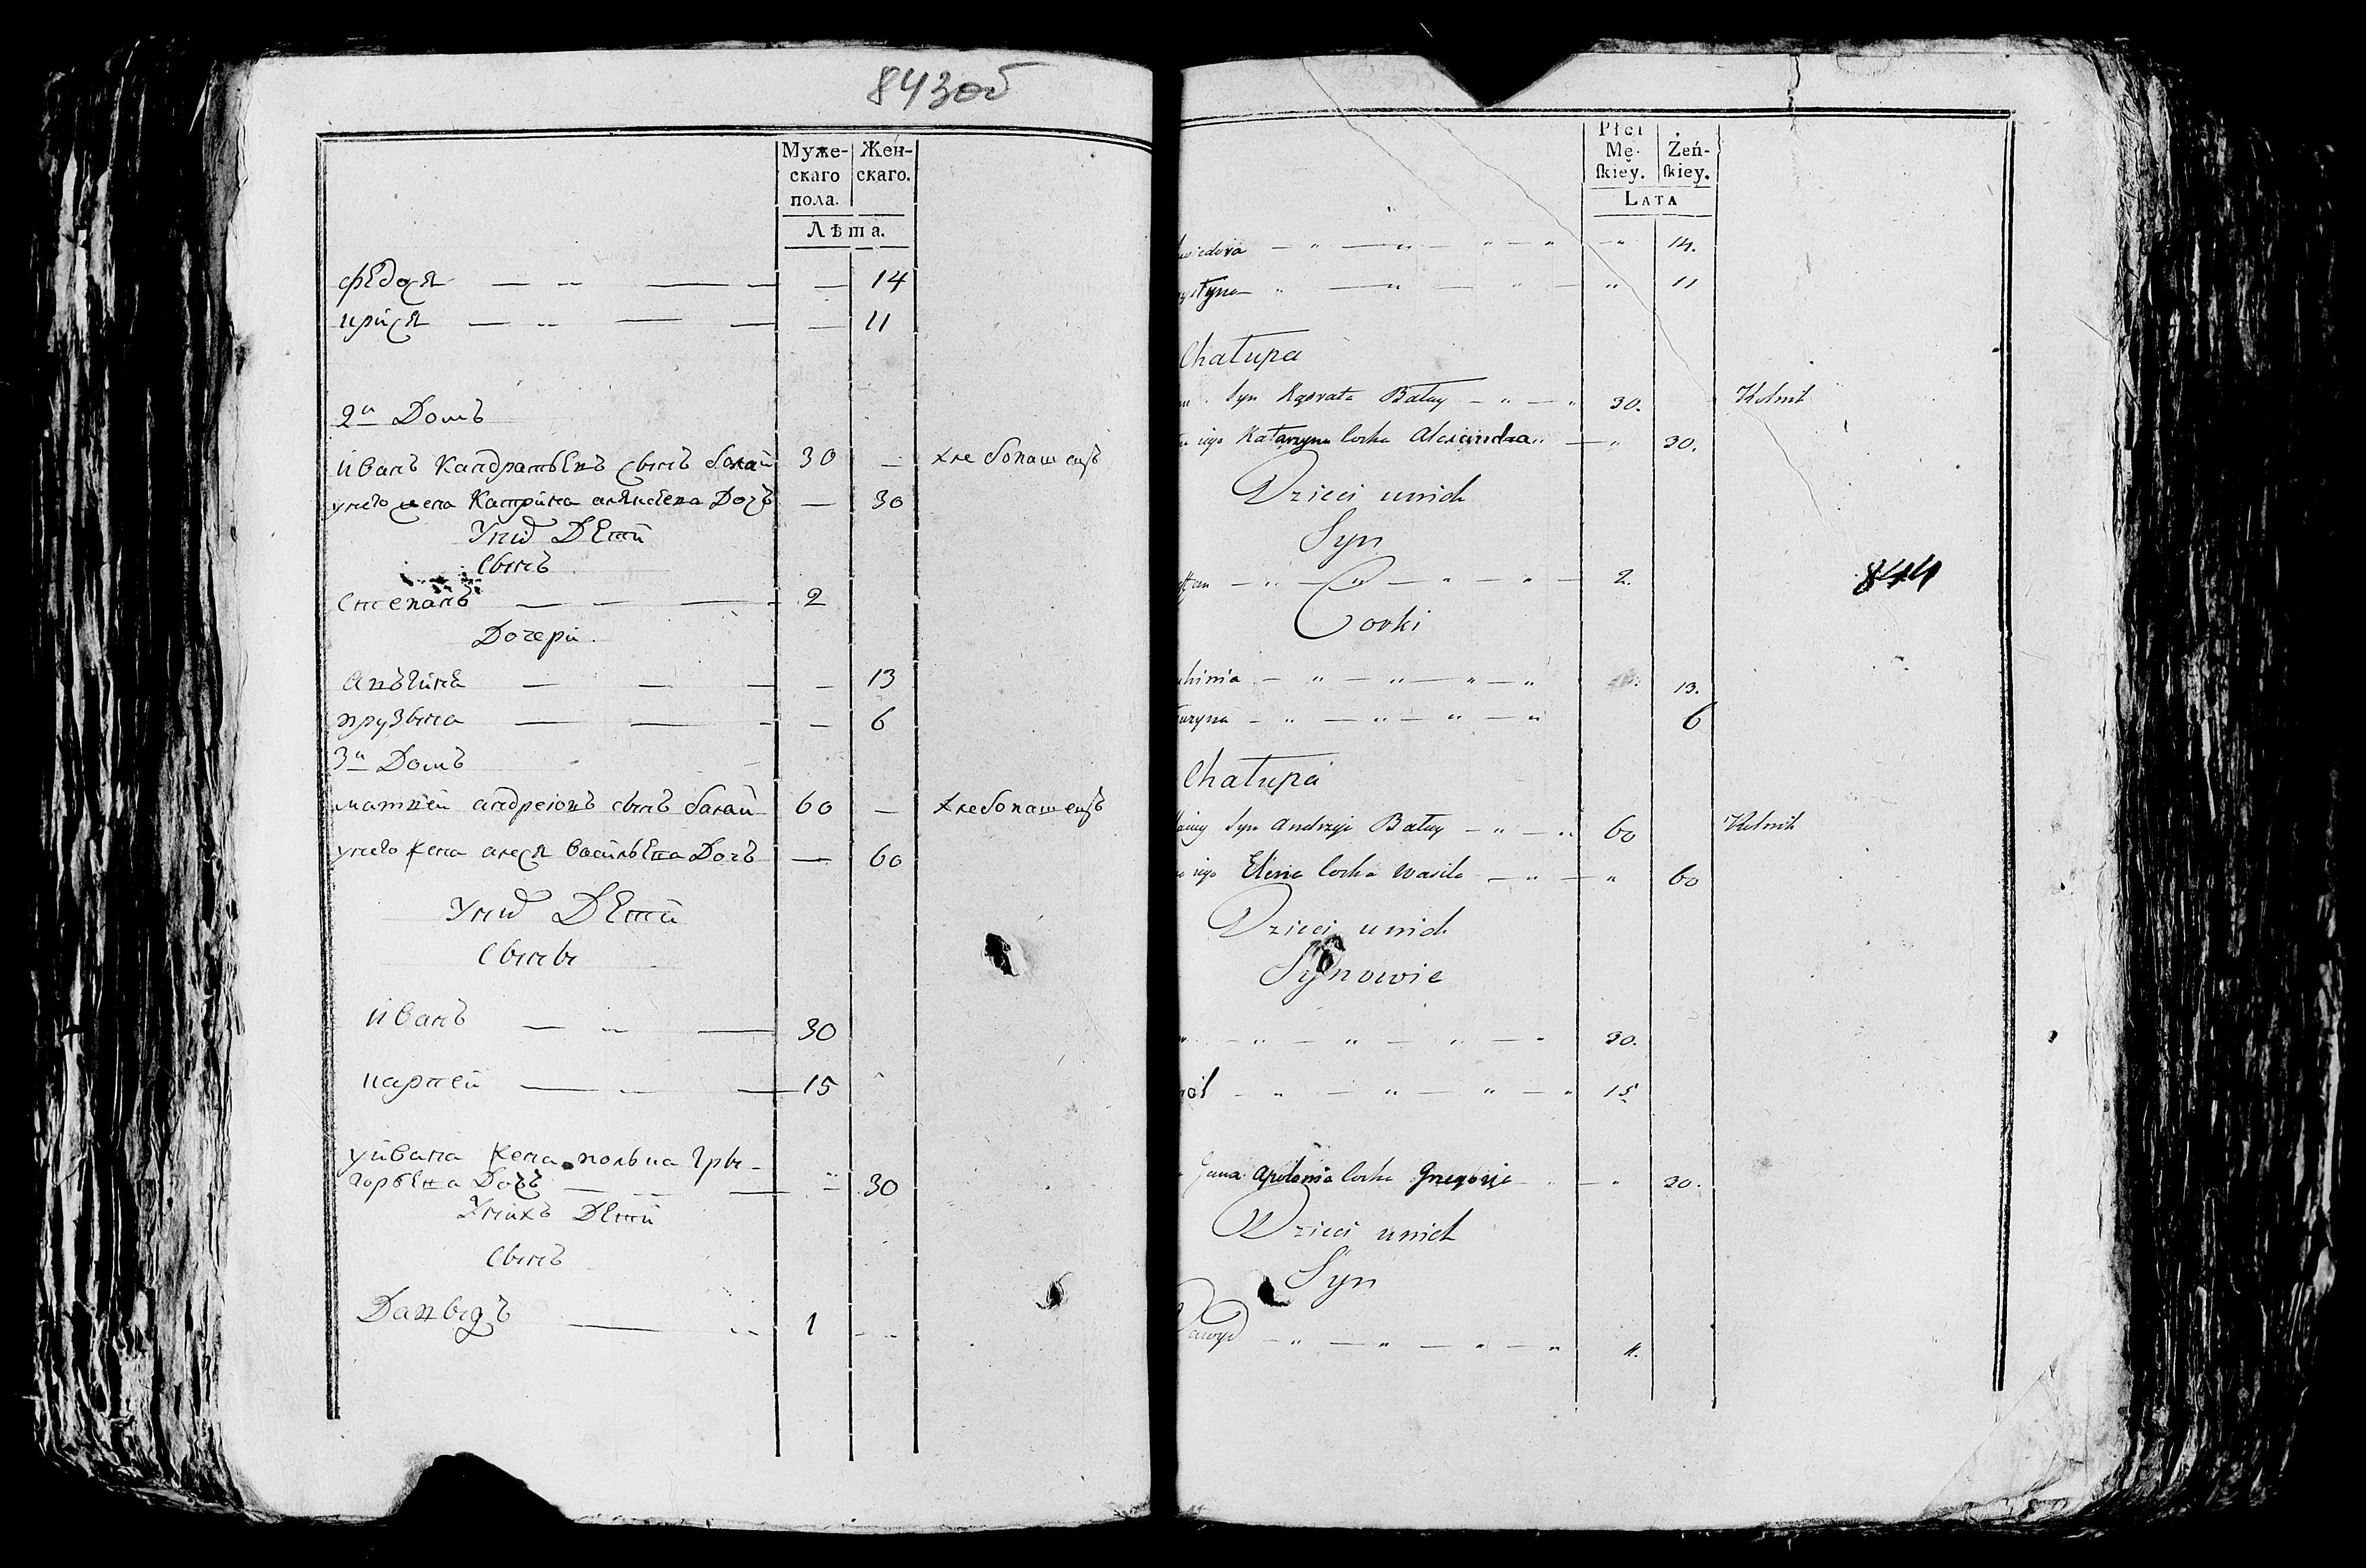 843об
Муже- Жен-
скаго скаго.
пола.
Лѣта.
федося — 14
крися — 11
2й Домъ
иванъ Кандратьевъ сынъ балай 30 — хлебопашецъ
унего жена Катрина Дочъ — 30
Уних Дети
сынъ
степанъ — 2
Дочери
— — 13
прузына — — 6
3й Домъ
матвей андреювъ сынъ балай 60 — хлебопашецъ
унего жена алеся васильева Дочъ — 60
Уних Дети
сыны
иванъ — 30
карпей — 15
уивана жена полька гры-
горьева Дочъ — 30
Унихъ Дети
сынъ
Давыдъ — 1
Płci
Mę- Żeń-
ſkiey. ſkiey.
LATA
14.
11
Chałupa
Syn Kąsrata Bałay 30. Rolnik
iego Katarzyna Corka Alexandra 30.
Dzieci unich
Syn
2.
Corki
13.
6
Chałupa
Syn Andrzeja Bałay 60 Rolnik
iego Elena Corka Wasila 60
Dzieci unich
Synowie
30.
15
Jana Apolonia Corka Gregorja 30.
Dzieci unich
Syn
Dawyd 1.
844